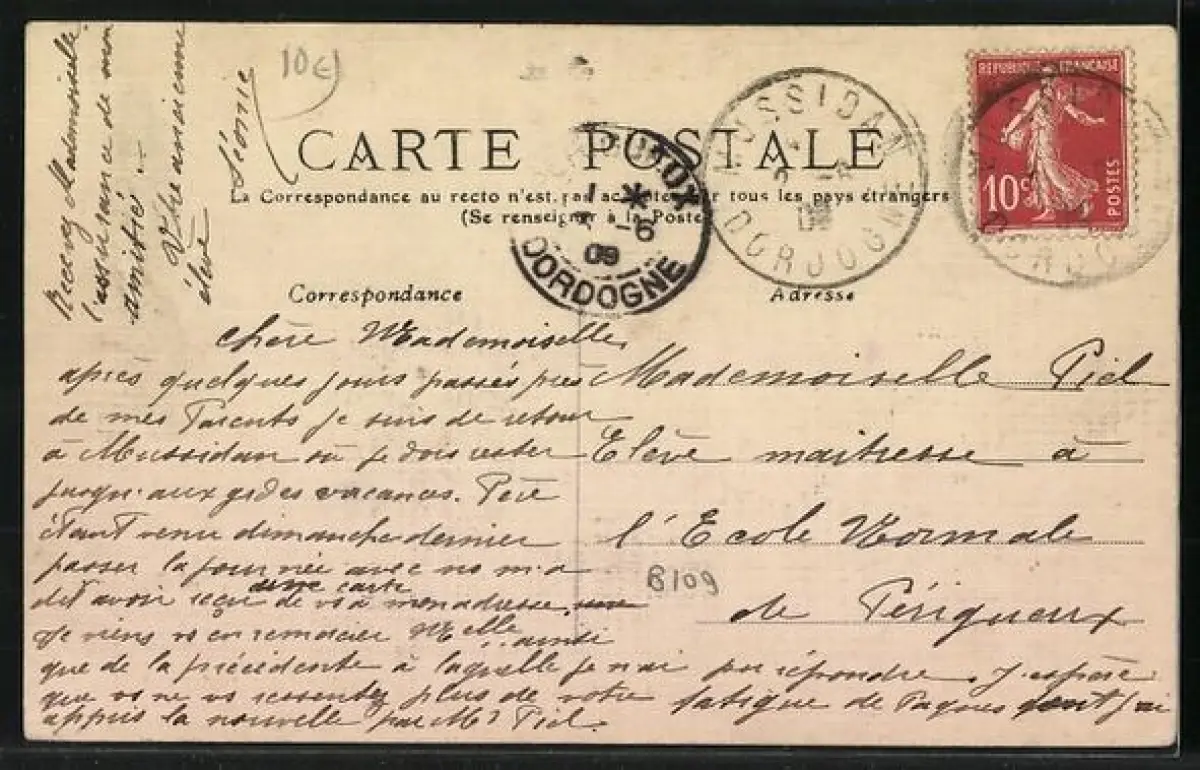 10€
CARTE POSTALE
La Correspondance au recto n'est pas acceptée par tous les pays étrangers
(Se renseigner à la Poste)
Correspondance
Adresse
RÉPUBLIQUE FRANÇAISE
10c
POSTES
MUSSIDAN
DORDOGNE
09
DORDOGNE
Chère Mademoiselle,
après quelques jours passés près
de mes Parents je suis de retour
à Mussidan où je dois rester
jusqu'aux gdes vacances. Père
étant venu dimanche dernier
passer la journée avec ns m'a
dit avoir reçu une carte de vs à mon adresse.
Je viens vs en remercier Melle ainsi
que de la précédente à laquelle je n'ai pu répondre. J'espère
que vs ne vs ressentez plus de votre fatigue de Pâques dont j'ai
appris la nouvelle par Mr Piel.
Recevez Mademoiselle
l'assurance de mon
amitié.
Votre ancienne
élève
Léonie
Mademoiselle Piel
Elève maitresse à
l'Ecole Normale
de Périgueux
B109